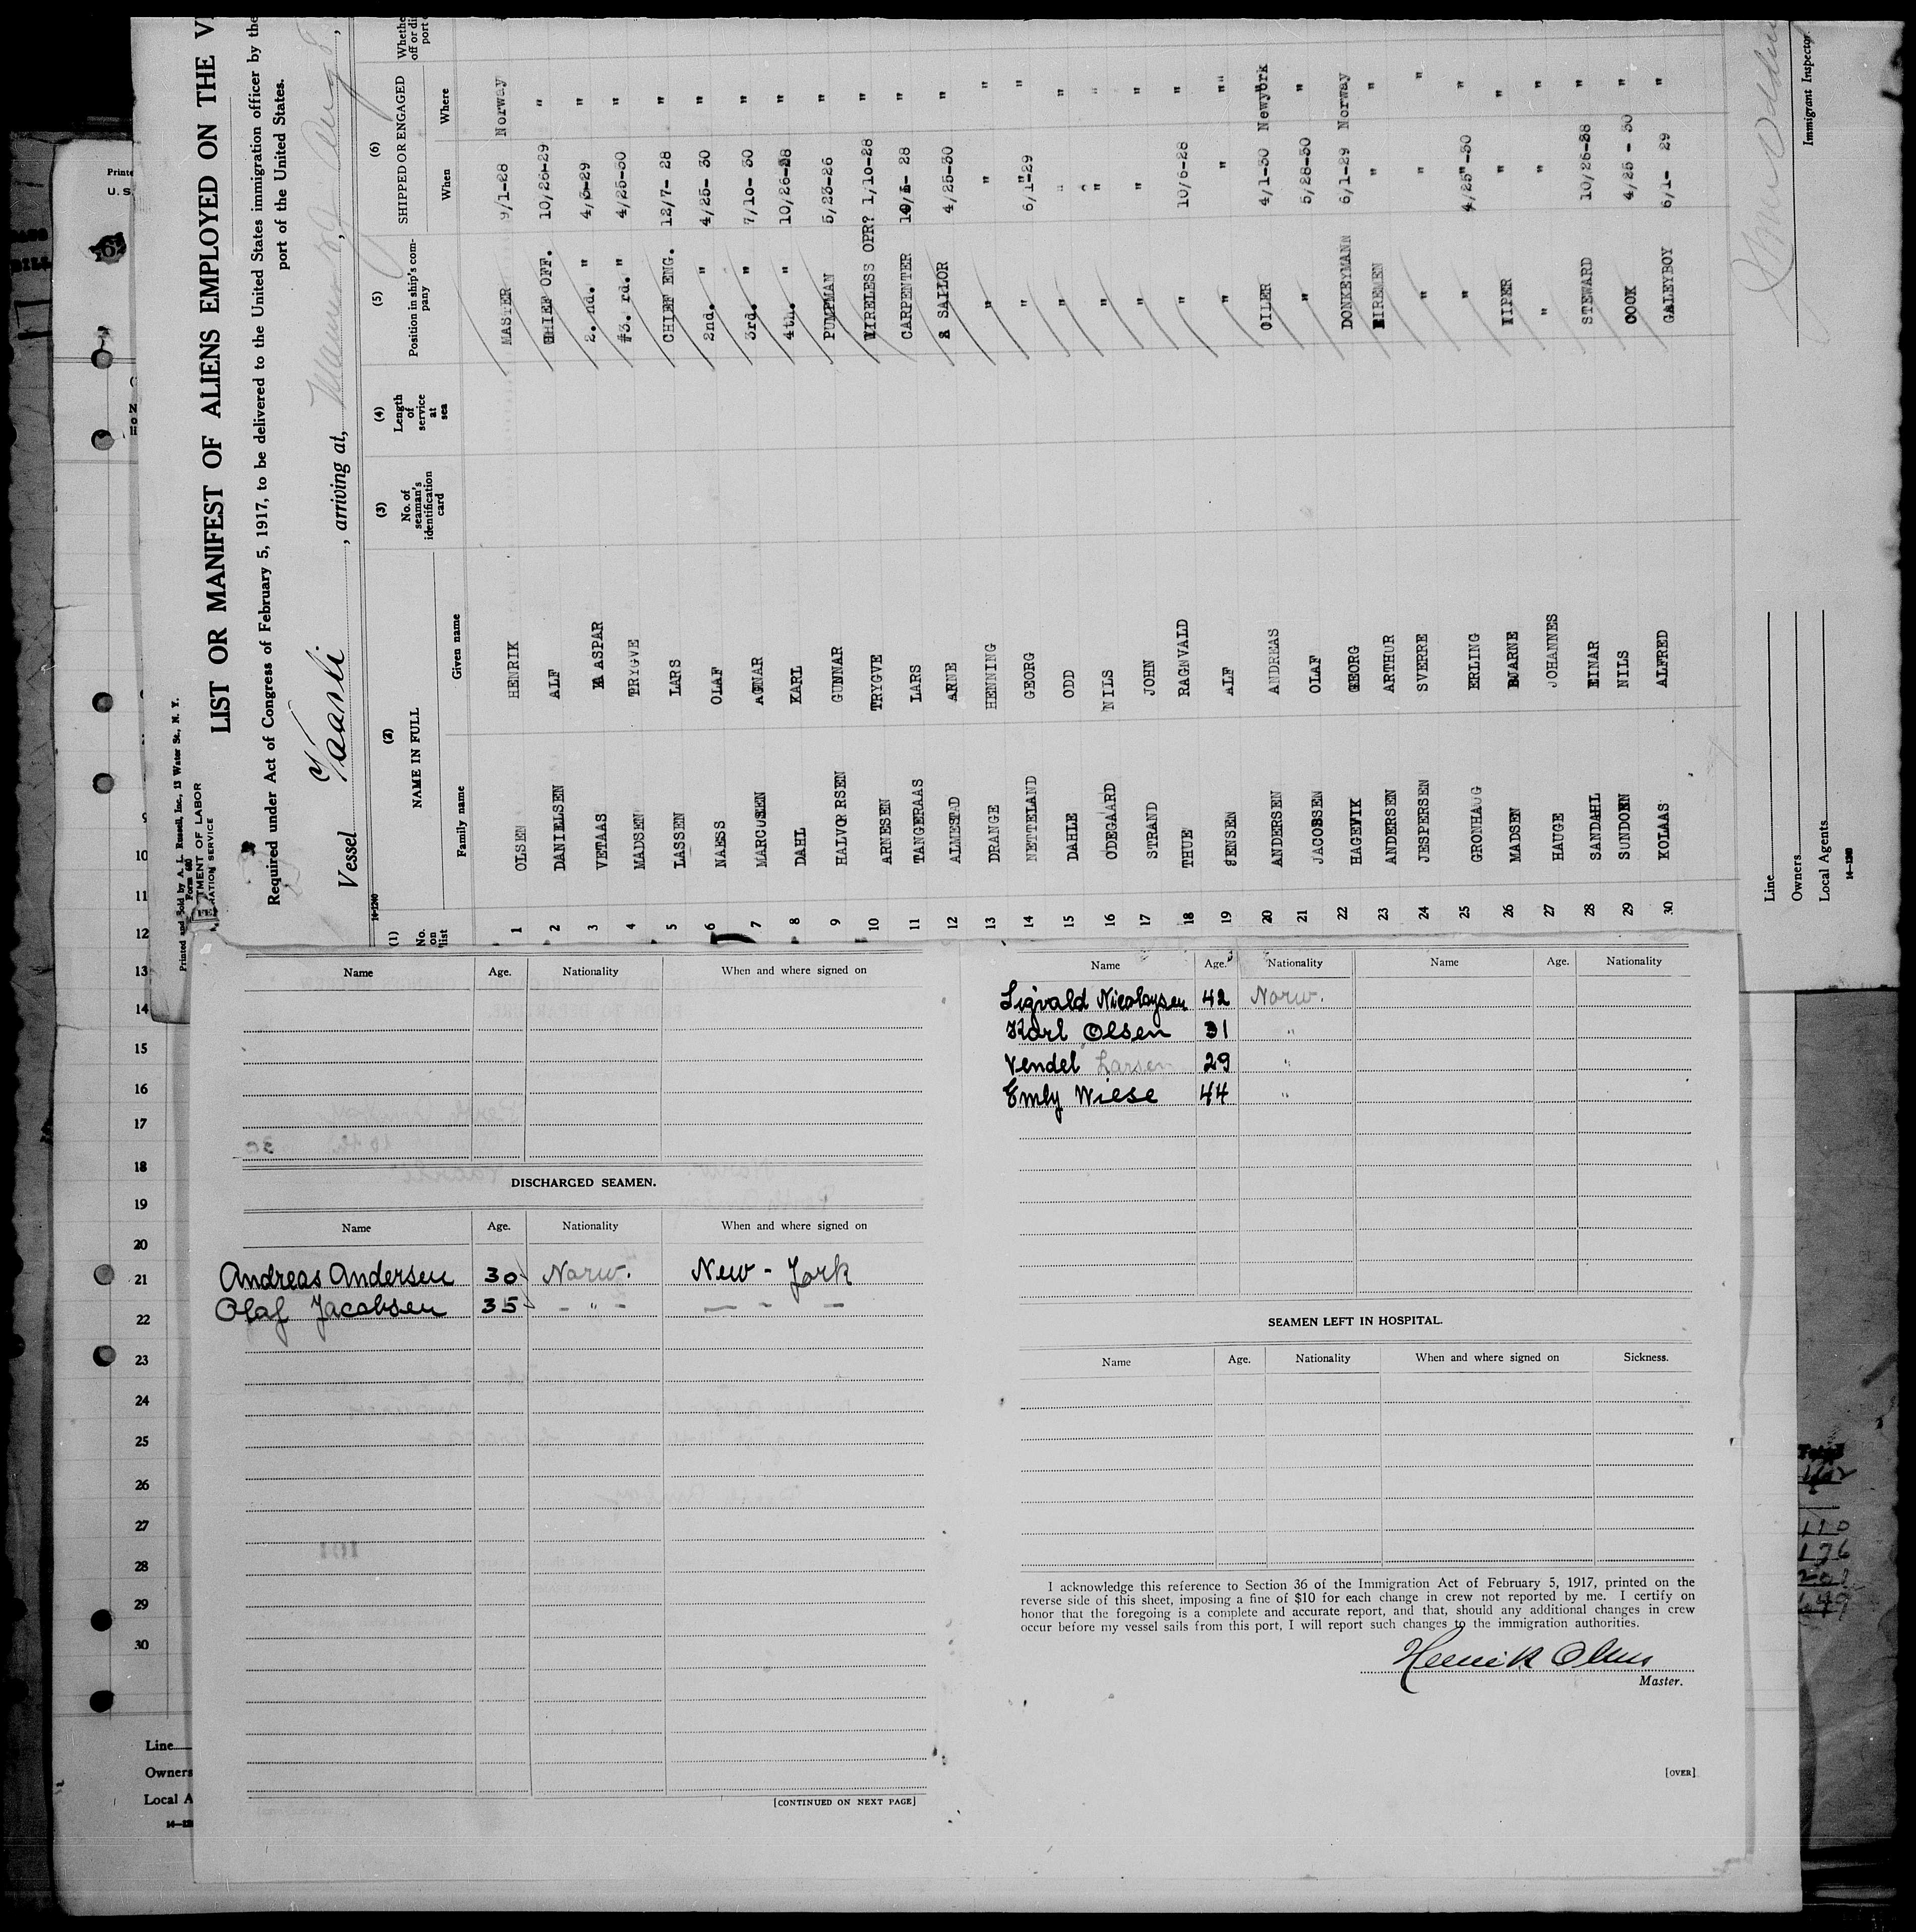 Printed and Sold by A. L. Russell, Inc., 13 Water St., N. Y.
Form 680
TMENT OF LABOR
RATION SERVICE
LIST OR MANIFEST OF ALIENS EMPLOYED ON THE V
Required under Act of Congress of February 5, 1917, to be delivered to the United States immigration officer by the
port of the United States.
Vessel Vaarli, arriving at,
14-1240
(1) (2) (3) (4) (5) (6)
No. on list NAME IN FULL No. of seaman's identification card Length of service at sea Position in ship's company SHIPPED OR ENGAGED
Family name Given name When Where
1 OLSEN HENRIK MASTER 9/1-28 Norway
2 DANIELSEN ALF CHIEF OFF. 10/26-29 "
3 VETAAS KASPAR 2. nd. " 4/3-29 "
4 MADSEN TRYGVE 3. rd. " 4/25-30 "
5 LASSEN LARS CHIEF ENG. 12/7- 28 "
6 NAESS OLAF 2nd. " 4/25- 30 "
7 MARCUSEN AGNAR 3rd. " 7/10- 30 "
8 DAHL KARL 4th. " 10/26-28 "
9 HALVORSEN GUNNAR PUMPMAN 5/23-26 "
10 ARNESEN TRYGVE WIRELESS OPR? 1/10-28 "
11 TANGERAAS LARS CARPENTER 28 "
12 ALMESTAD ARNE SAILOR 4/25-30 "
13 DRANGE HENNING " " "
14 NETTELAND GEORG " 6/1-29 "
15 DAHLE ODD " " "
16 ODEGAARD NILS " " "
17 STRAND JOHN " " "
18 THUE RAGNVALD " 10/6-28 "
19 JENSEN ALF " " "
20 ANDERSEN ANDREAS OILER 4/1-30 Newyork
21 JACOBSEN OLAF " 5/28-30 "
22 HAGEVIK GEORG DONKEYMANN 6/1-29 Norway
23 ANDERSEN ARTHUR FIREMEN " "
24 JESPERSEN SVERRE " " "
25 GRONHAUG ERLING " 4/25-30 "
26 MADSEN BJARNE WIPER " "
27 HAUGE JOHANNES " " "
28 SANDAHL EINAR STEWARD 10/26-28 "
29 NILS COOK 4/25 - 30 "
30 KOLAAS ALFRED GALEYBOY 6/1- 29 "
Immigrant Inspector.
Line
Owners
Local Agents
14-1240
Name Age. Nationality When and where signed on
DISCHARGED SEAMEN.
Name Age. Nationality When and where signed on
Andreas Andersen 30 Norw. New - York
Olaf Jacobsen 35 - " - — - —
[CONTINUED ON NEXT PAGE]
Name Age. Nationality Name Age. Nationality
Sigvald Nicolaysen 42 Norw.
Karl Olsen 31 "
Vendel Larsen 29 "
Emly Wiese 44 "
SEAMEN LEFT IN HOSPITAL.
Name Age. Nationality When and where signed on Sickness.
I acknowledge this reference to Section 36 of the Immigration Act of February 5, 1917, printed on the
reverse side of this sheet, imposing a fine of $10 for each change in crew not reported by me. I certify on
honor that the foregoing is a complete and accurate report, and that, should any additional changes in crew
occur before my vessel sails from this port, I will report such changes to the immigration authorities.
Henrik Olsen
Master.
[OVER]
9
10
11
12
13
14
15
16
17
18
19
20
21
22
23
24
25
26
27
28
29
30
Line
Owners
Local A
Total
110